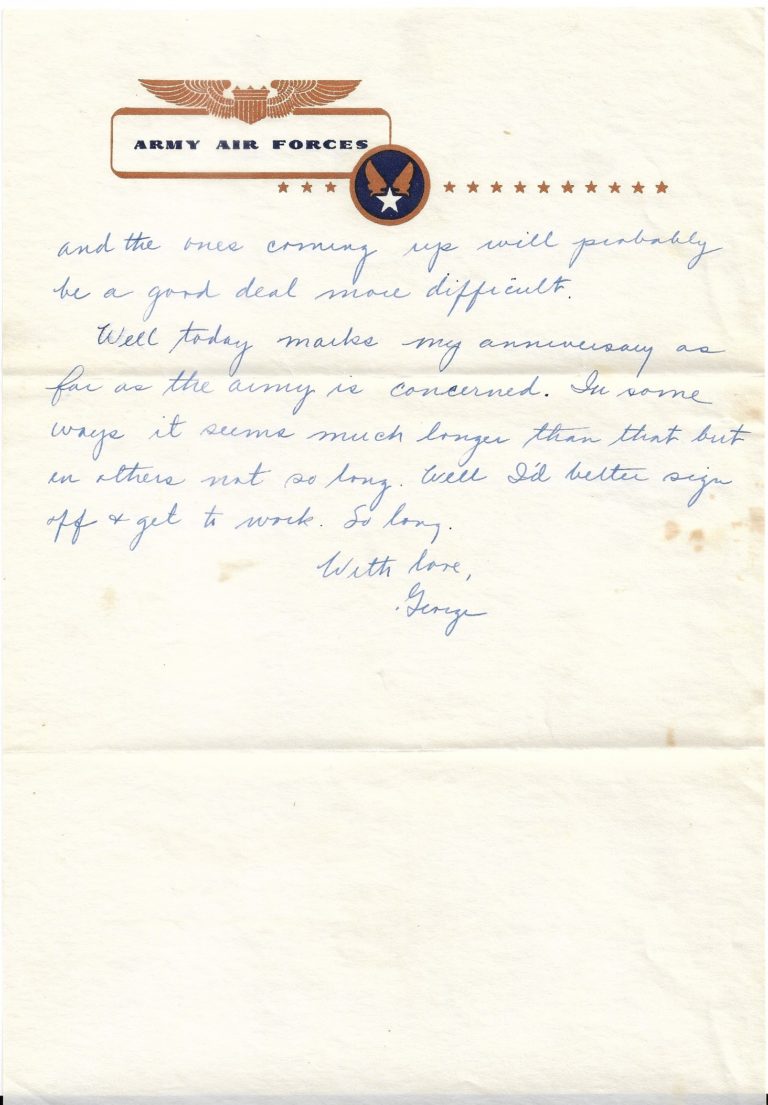 ARMY AIR FORCES
and the ones coming up will probably
be a good deal more difficult.
Well today marks my anniversary as
far as the army is concerned. In some
ways it seems much longer than that but
in others not so long. Well I'd better sign
off & get to work. So long.
With love,
George